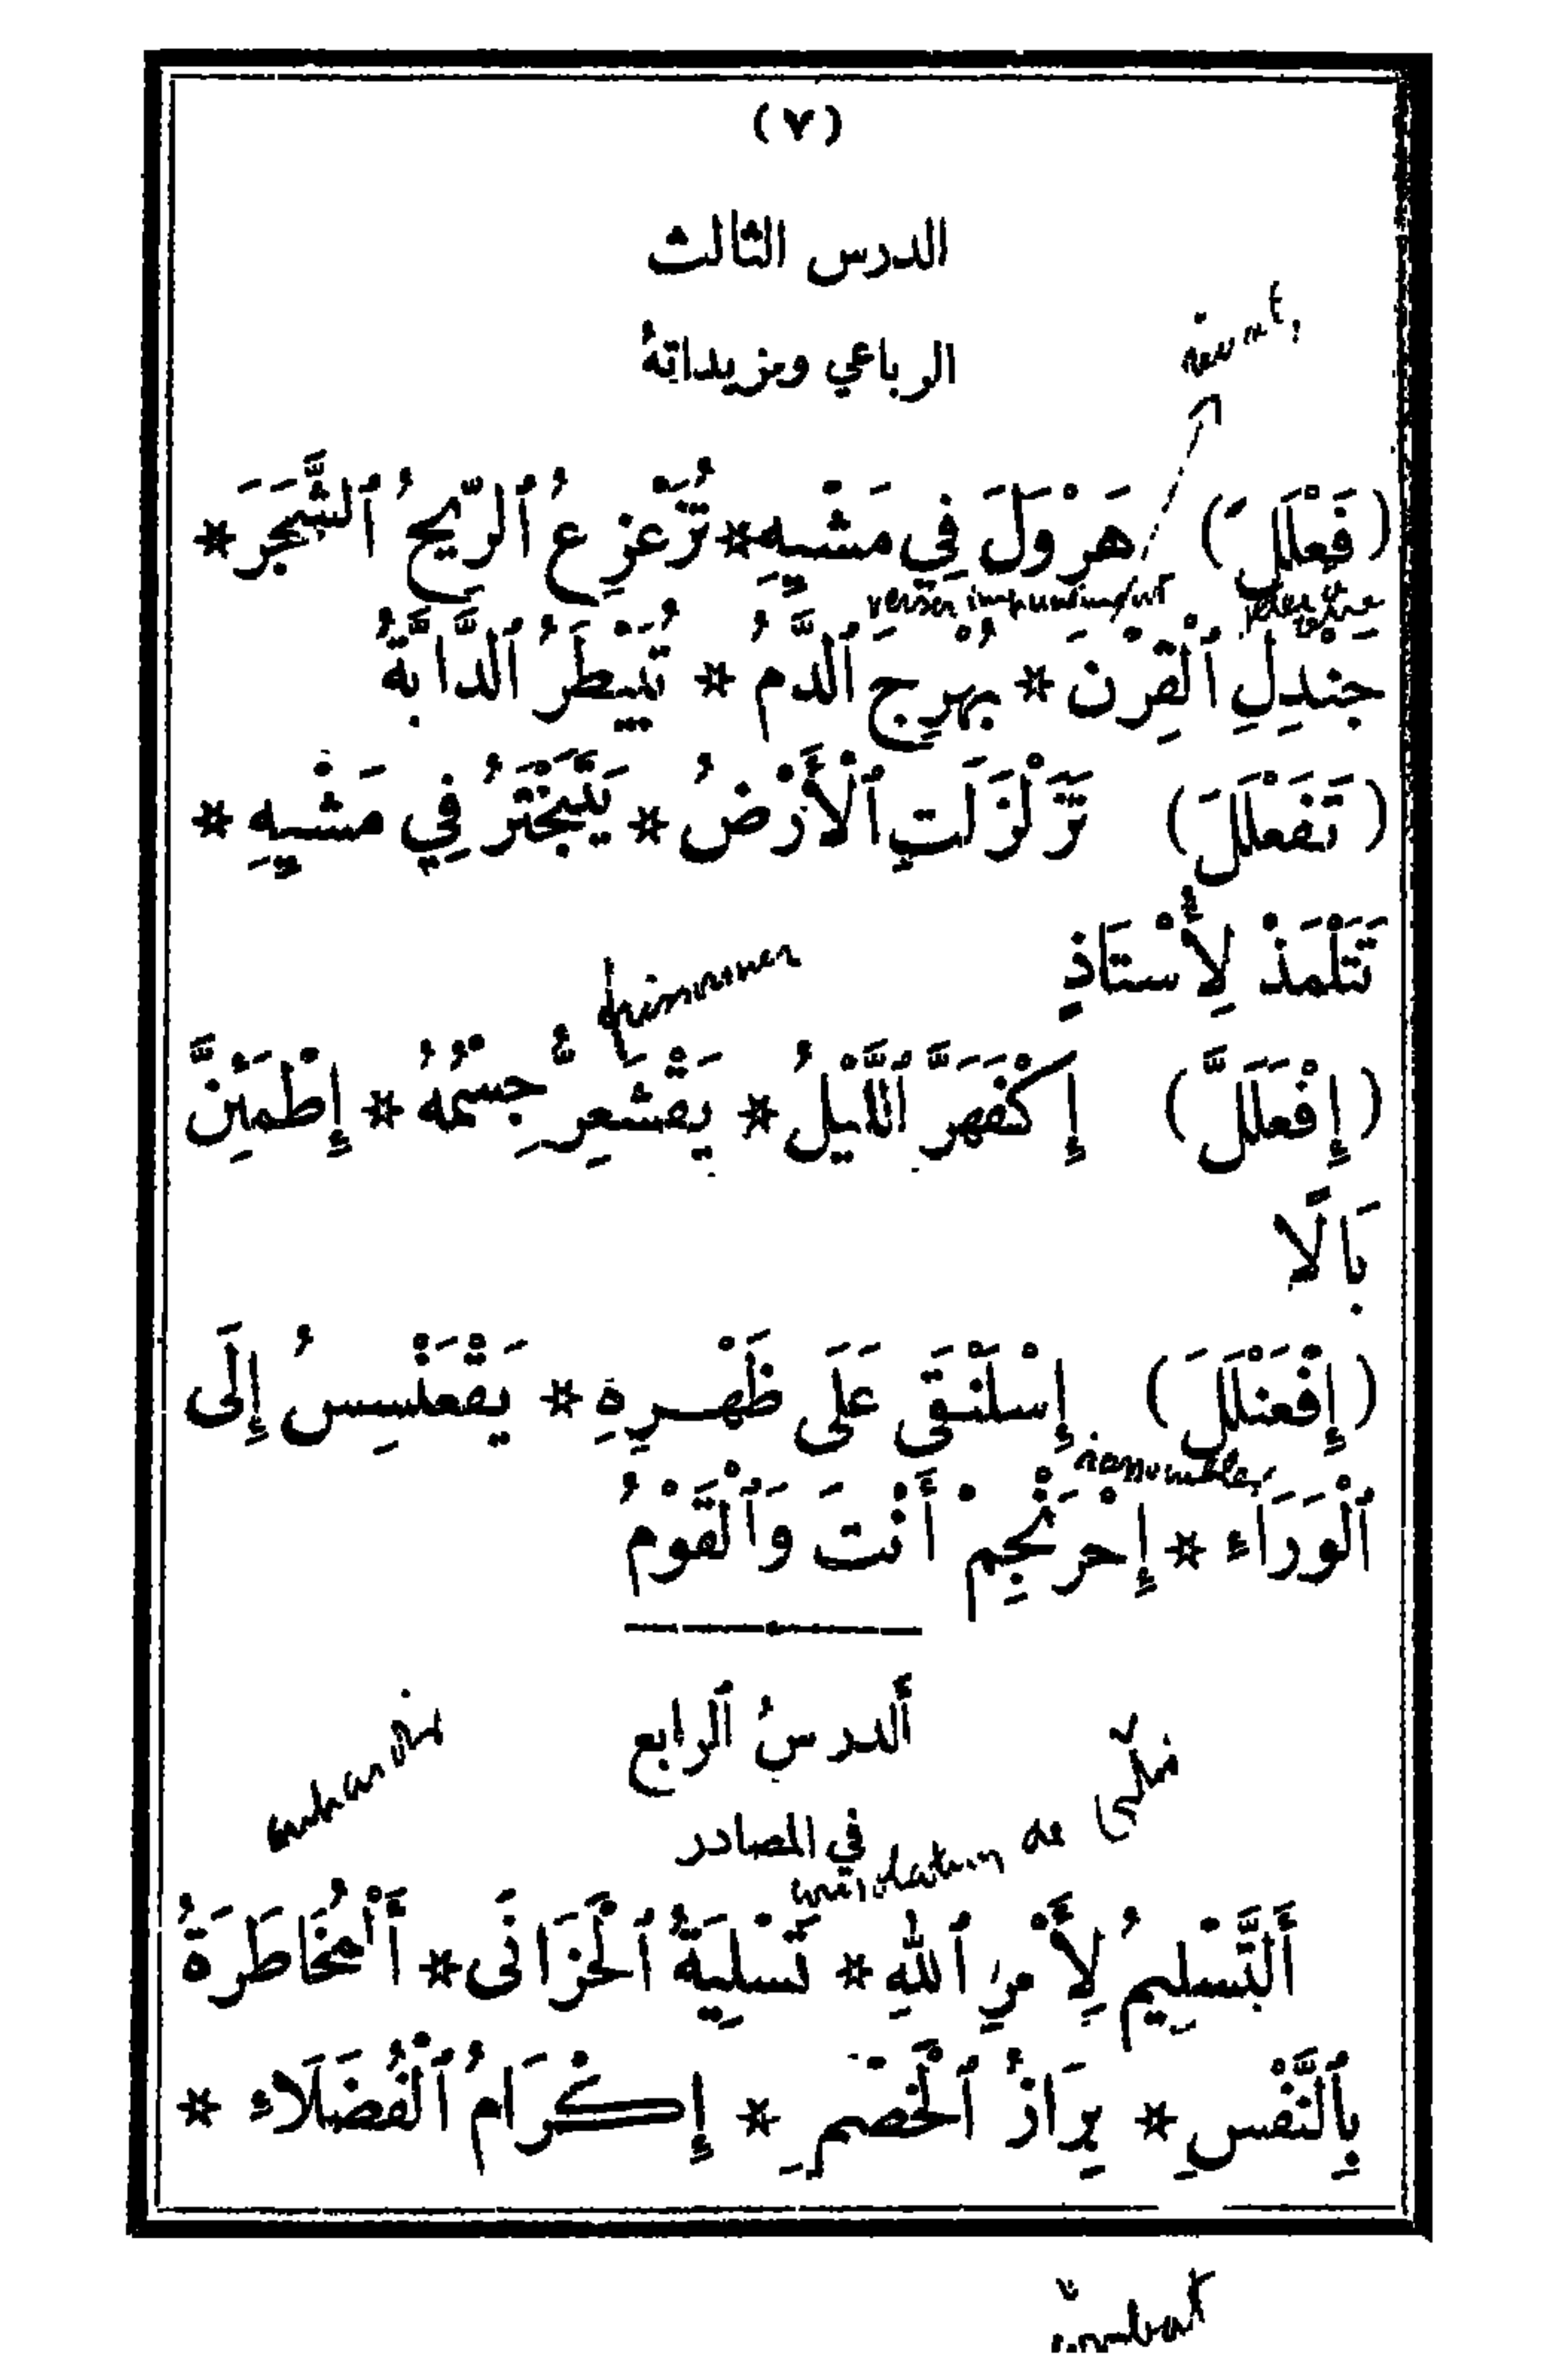 (٧)
الدرس الثالث
الرباعي ومزيداتهُ
(فَعْلَلَ) هَرْوَلَ فِي مَشْيِهِ * تُزَعْزِعُ ٱلرِّيحُ ٱلشَّجَرَ *
verser impunément
جَنْدِلِ ٱلْقِرْنَ * بُهْرِجَ ٱلدَّمُ * تُبَيْطَرُ ٱلدَّابَّةُ
(تَفَعْلَلَ) تَزَلْزَلَتِ ٱلْأَرْضُ * يَتَبَخْتَرُ فِي مَشْيِهِ *
تَتَلْمَذْ لِأُسْتَاذٍ
frissonner
(إِفْعَلَلَّ) إِكْفَهَرَّ ٱللَّيْلُ * يَقْشَعِرُّ جِسْمُهُ * إِطْمَئِنَّ
بَالًا
(إِفْعَنْلَلَ) إِسْلَنْقَى عَلَى ظَهْرِهِ * يَقْعَنْسِسُ إِلَى
ٱلْوَرَاءِ * إِحْرَنْجِمْ أَنْتَ وَٱلْقَوْمُ
أَلدرسُ ٱلرابع
في المصادر
consolation de
أَلتَّسْلِيمُ لِأَمْرِ ٱللهِ * تَسْلِيَةُ ٱلْحَزَانَى * أَلْمُخَاطَرَةُ
بِٱلنَّفْسِ * بِرَازُ ٱلْخَصْمِ * إِكْرَامُ ٱلْفُضَلَاءِ *
combat